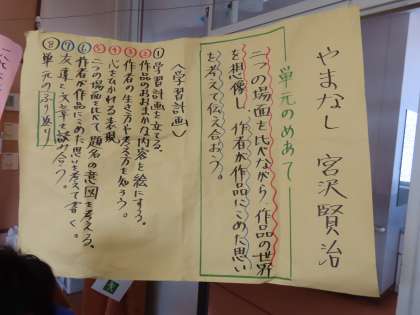 やまなし 宮沢賢治
単元のめあて
二つの場面を比べながら、作品の世界
を想像し、作者が作品にこめた思い
を考えて伝え合おう。
〈学習計画〉
①学習計画を立てる。
②作品のおおまかな内容を絵にする。
③作者の生き方や考え方を知ろう。
④心をひかれる表現
⑤二つの場面を比べて、題名の意図を考える。
⑥作者が作品にこめた思いを考えて書く。
⑦友達と文章を読み合う。
⑧単元のふり返り